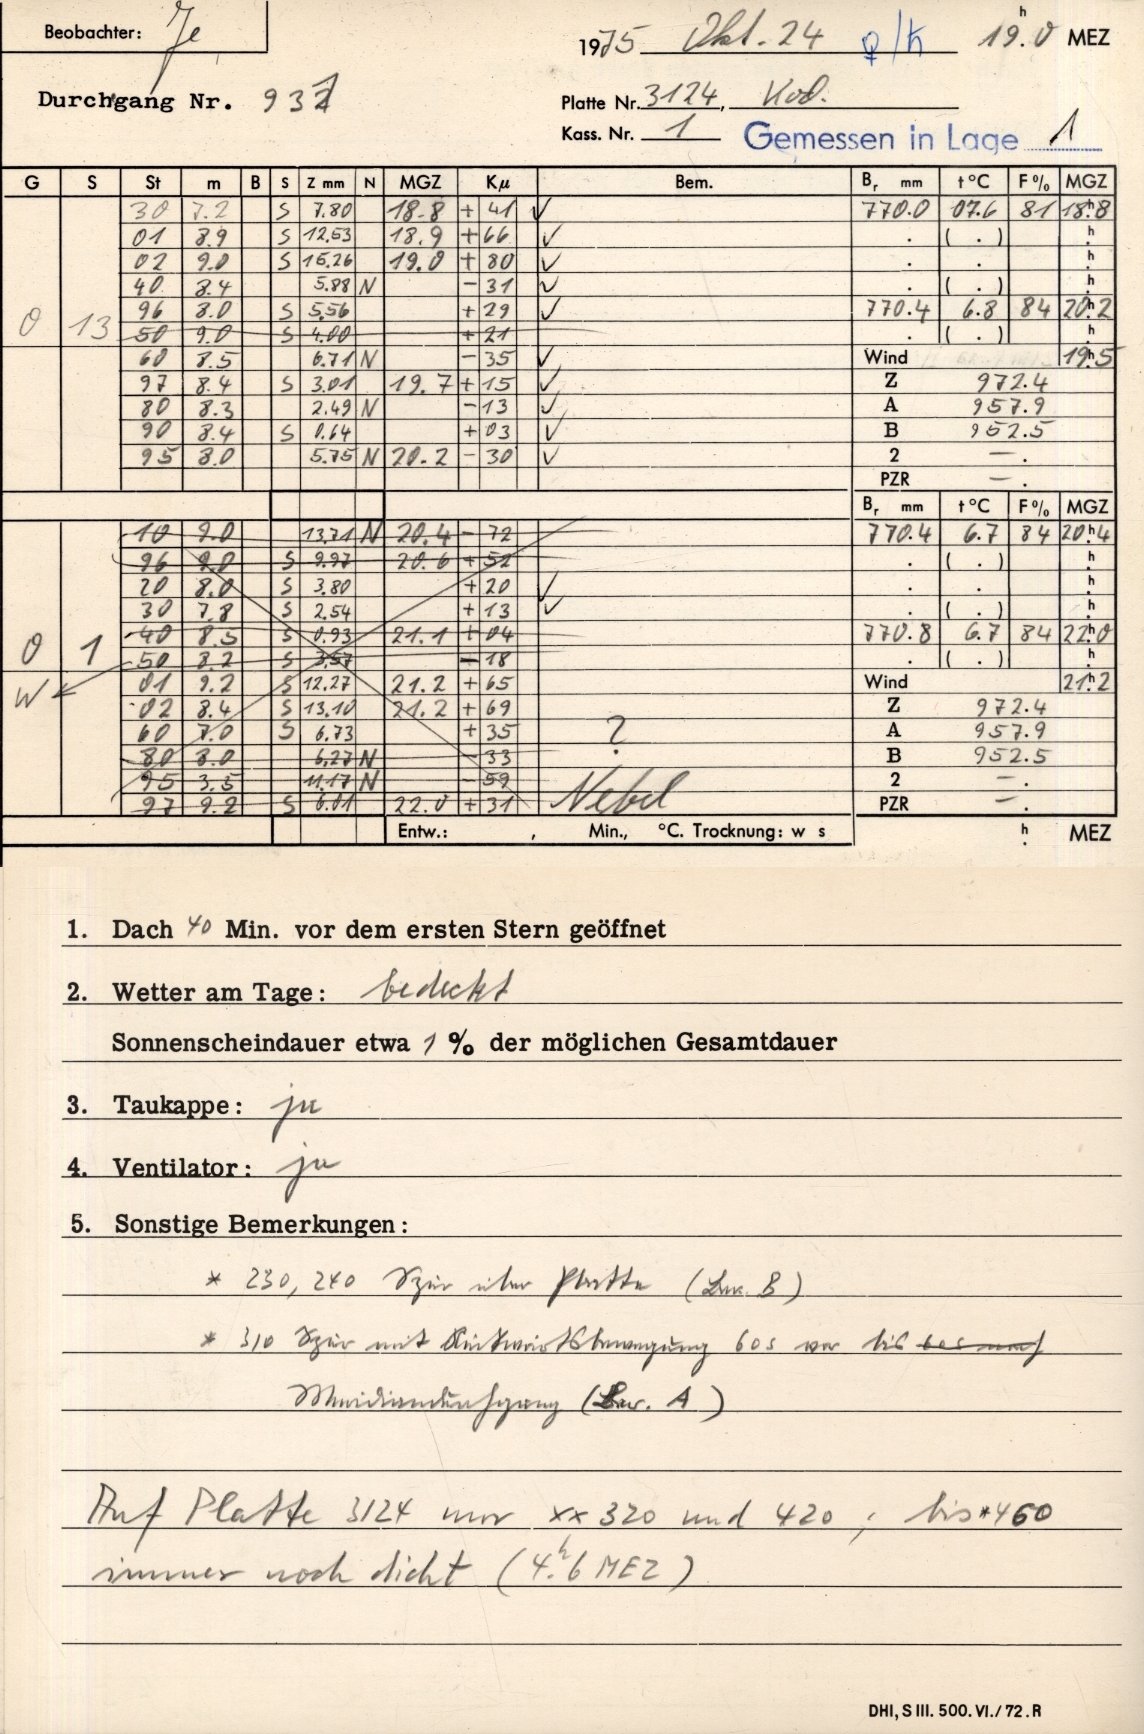 Beobachter: Je
1975 Okt. 24 ♀/♄ 19.ʰ0 MEZ
Durchgang Nr. 931
Platte Nr. 3124, Kod.
Kass. Nr. 1 Gemessen in Lage 1
G S St m B S Z mm N MGZ Kμ Bem. Bᵣ mm t°C F% MGZ
30 7.2 S 7.80 18.8 + 41 ✓ 770.0 07.6 81 18.ʰ8
01 8.9 S 12.53 18.9 + 66 ✓ . ( . ) ʰ.
02 9.0 S 15.26 19.0 + 80 ✓ . . ʰ.
40 8.4 5.88 N - 31 ✓ . ( . ) ʰ.
96 8.0 S 5.56 + 29 ✓ 770.4 6.8 84 20.ʰ2
0 13 50 9.0 S 4.00 + 21 . ( . ) ʰ.
60 8.5 6.71 N - 35 ✓ Wind 19.ʰ5
97 8.4 S 3.01 19.7 + 15 ✓ Z 972.4
80 8.3 2.49 N - 13 ✓ A 957.9
90 8.4 S 0.64 + 03 ✓ B 952.5
95 8.0 5.75 N 20.2 - 30 ✓ 2 - .
PZR - .
Bᵣ mm t°C F% MGZ
10 9.0 13.71 N 20.4 - 72 770.4 6.7 84 20.ʰ4
96 9.0 S 9.97 20.6 + 52 . ( . ) ʰ.
20 8.0 S 3.80 + 20 ✓ . . ʰ.
30 7.8 S 2.54 + 13 ✓ . ( . ) ʰ.
0 1 40 8.5 S 0.93 21.1 + 04 770.8 6.7 84 22.ʰ0
50 8.2 S 3.57 - 18 . ( . ) ʰ.
W 01 9.2 S 12.27 21.2 + 65 Wind 21.ʰ2
02 8.4 S 13.10 21.2 + 69 Z 972.4
60 7.0 S 6.73 + 35 ? A 957.9
80 8.0 6.27 N - 33 B 952.5
95 3.5 11.17 N - 59 2 - .
97 9.2 S 6.01 22.0 + 31 Nebel PZR - .
Entw.: , Min., °C. Trocknung: w s ʰ. MEZ
1. Dach 40 Min. vor dem ersten Stern geöffnet
2. Wetter am Tage: bedeckt
Sonnenscheindauer etwa 1 % der möglichen Gesamtdauer
3. Taukappe: ja
4. Ventilator: ja
5. Sonstige Bemerkungen:
* 230, 240 Spur über Platte (Bew. B)
* 310 Spur mit Rückwärtsbewegung 60s vor bis 60s nach
Meridiandurchgang (Bew. A)
Auf Platte 3124 nur ** 320 und 420 ; bis *460
immer noch dicht (4.ʰ6 MEZ)
DHI, S III. 500. VI./72. R